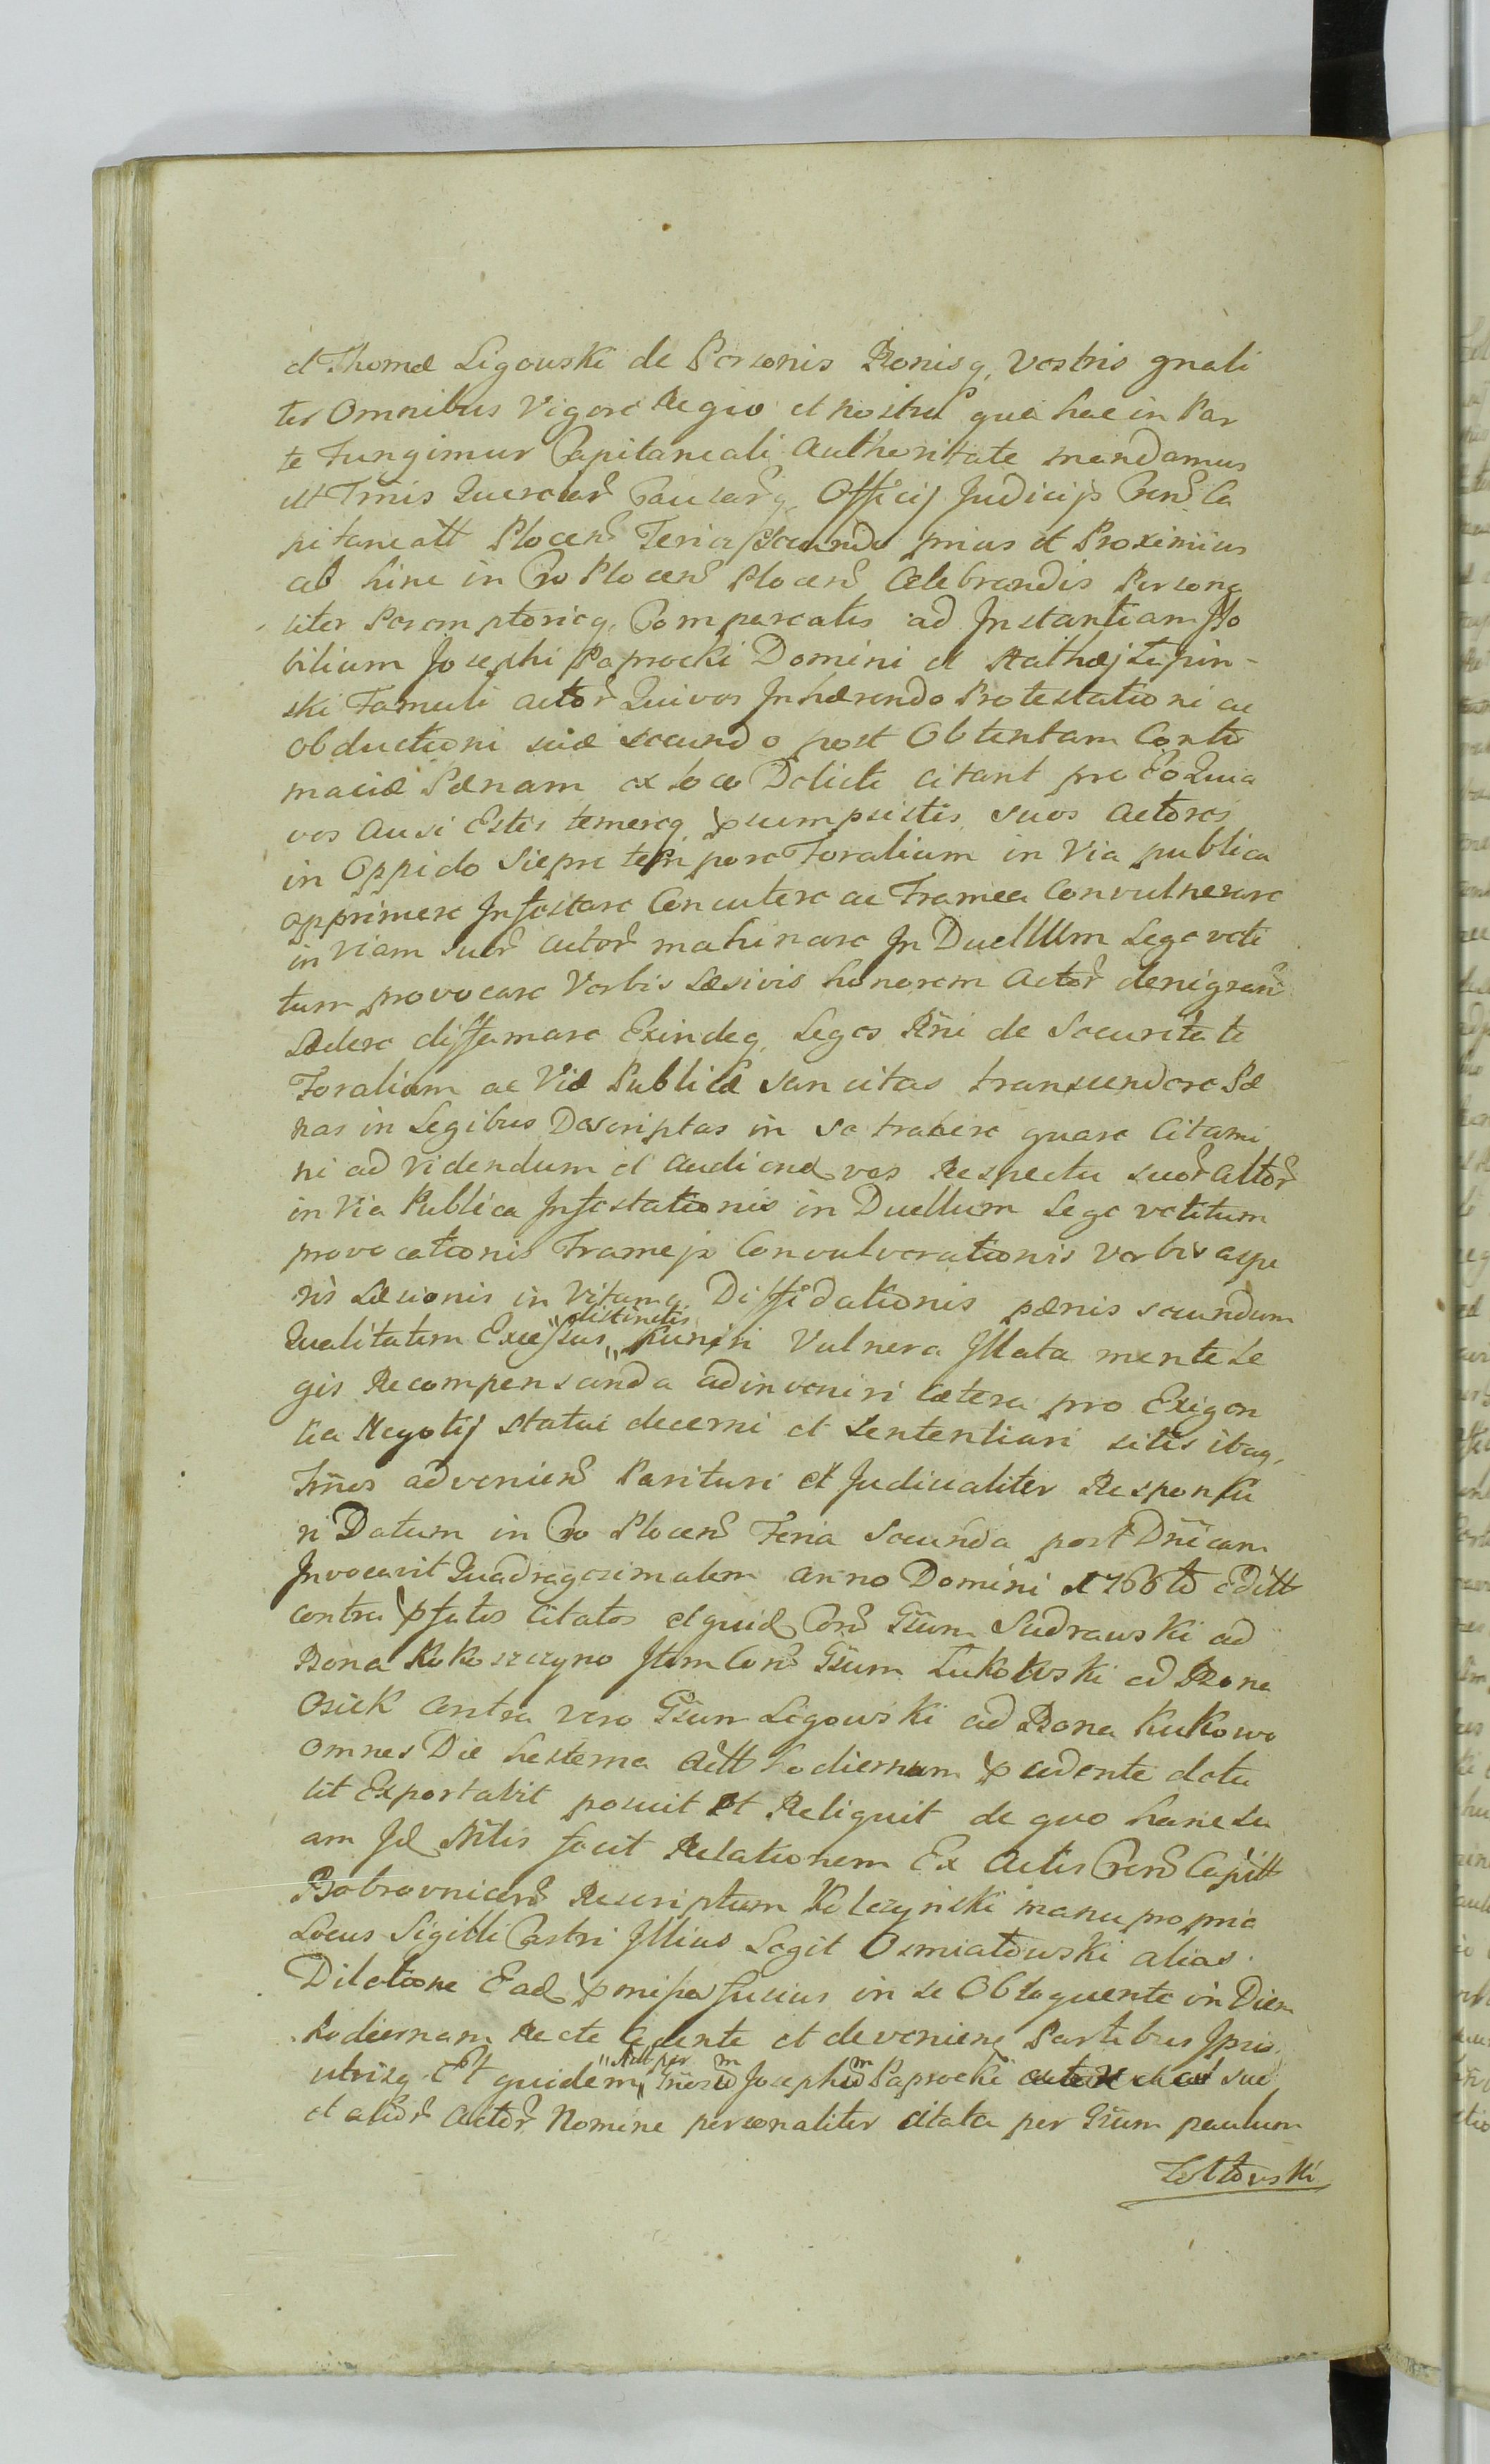 et Thomæ Ligowski de Personis Bonisq, Vestris gnali
ter Omnibus Vigore Regio et nostra qua hac in Par
te Fungimur Capitaneali Authoritate mandamus
ut Tmis Querelar Causarq Officij Judicijs Cren Ca
pitaneatt Plocen Feria Secunda prius et Proximius
ab hinc in Cro Plocen Plocen Celebrandis Persona
liter Peremptorieq, Compareatis ad Instantiam No
bilium Josephi Paprocki Domini et Mathæj Lipin-
ski Famuli actor Qui vos Inhærendo Protestationi ac
Obductioni suæ secundo post Obtentam Contu
maciæ Pænam ex loco Delicti citant pro Eo Quia
vos Ausi Estis temereq, psumpsistis suos actores
in Oppido Sierpc tempore Foralium in Via publica
opprimere Infestare Concutere ac Framea Convulnerare
in viam suor actor machinare In Duellum Lege veti
tum provocare Verbis Læsivis honorem Actor denigran
Lædere diffamare Exindeq, Leges Rni de Securitate
Foralium ac Viæ Publicæ sancitas transcendere Pæ
nas in Legibus Descriptas in se trahere quare Citami
ni ad videndum et audiend vos Respectu suor actor
in Via Publica Infestationis in Duellum Lege vetitum
provocationis Framejs Convulnerationis verbis aspe
ris Læsionis in Vitamq, Diffidationis pænis secundum
Qualitatem Excessus "distinctis" Puniri Vulnera Illata mente Le
gis Recompensanda adinveniri cætera pro Exigen
tia Negotij statui decerni et Sententiari sitis itaq,
Tmos advenien Parituri et Judicialiter Responsu
ri Datum in Cro Plocen Feria Secunda post Dnicam
Invocavit Quadragesimalem Anno Domini 1766to Editt
contra pfatos Citatos et quid Con Gsum Sudrawski ad
Bona Kokoszczyno Item Con Gsum Lukowski ad Bona
Osiek contra vero Gsum Ligowski ad Bona Kukowo
omnes Die hesterna actt hodiernum pcedente detu
lit Exportavit posuit Et Reliquit de quo hanc su
am Id Mtlis fecit Relationem Ex Actis Cren Capitt
Bobrownicen Rescriptum Kleczynski manu propria
Locus Sigilli Castri Illius Legit Osmiatowski alias
Dilatione Ead pmissa fusius in se Obloquente in Diem
hodiernam Recte Cadente et devenien Partibus Ipsis
utrisq Et quidem "Act per" Gnosum Josephum Paprocki suo
et alior Actor Nomine personaliter citata per Gsum paulum
Zottowski